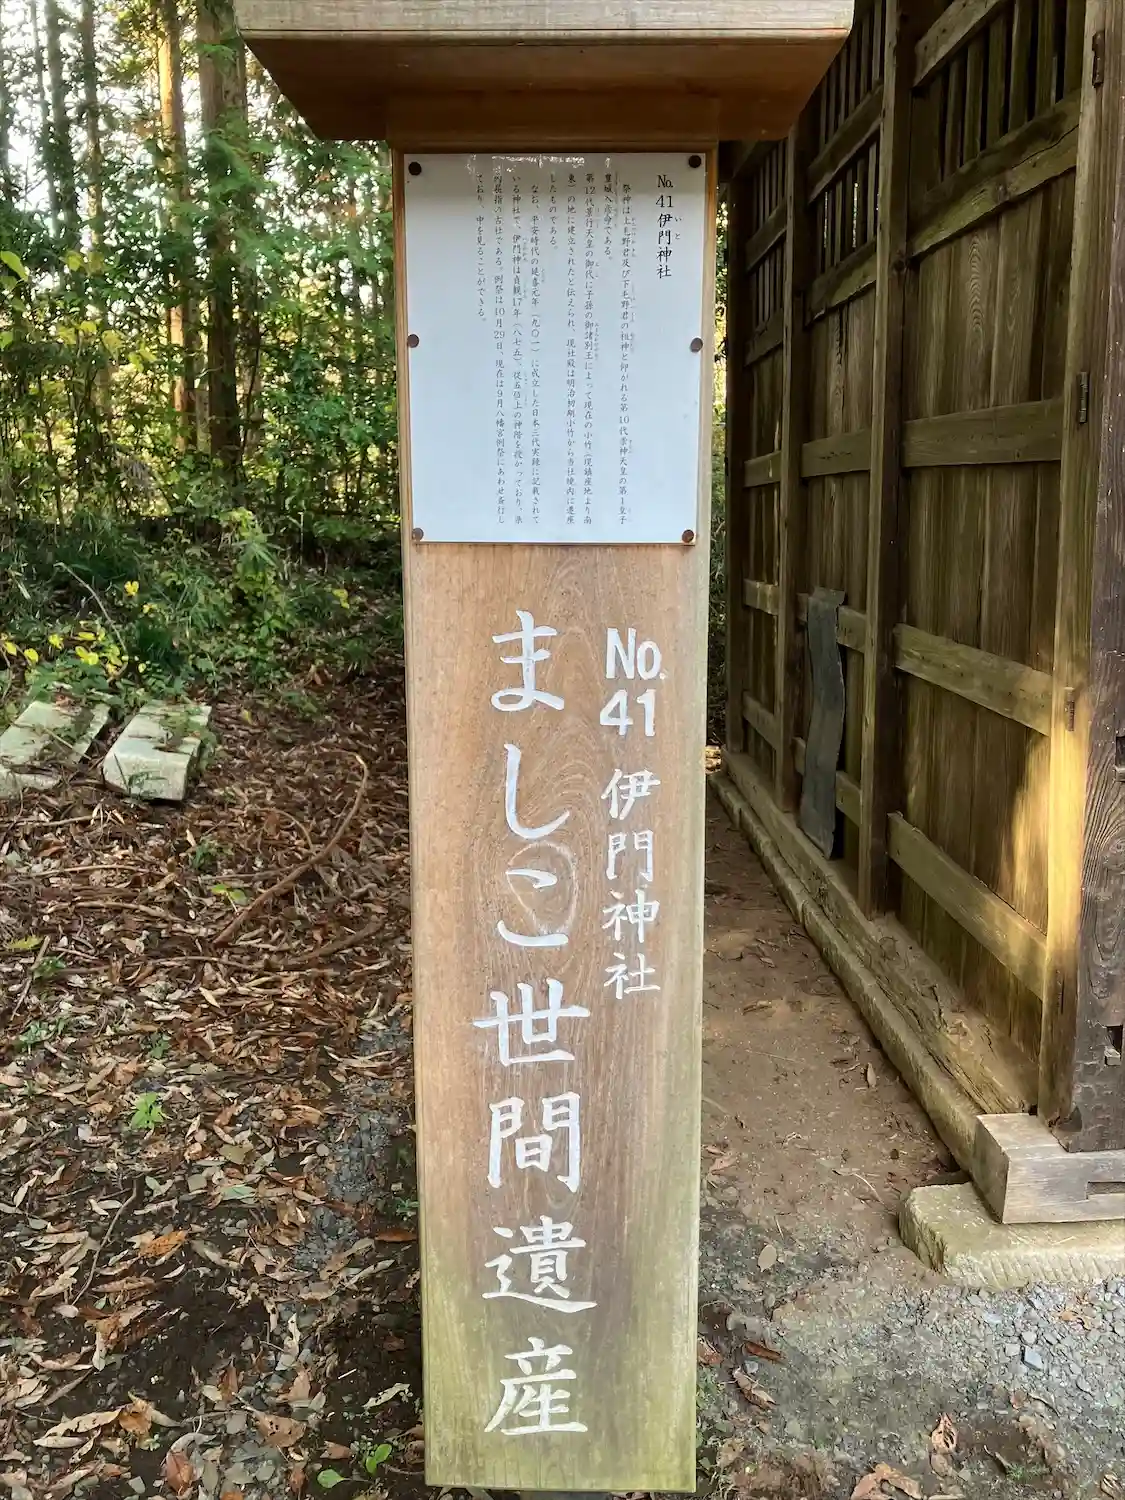 No.41 伊門神社
祭神は上毛野君及び下毛野君の祖神と仰がれる第10代崇神天皇の第1皇子
豊城入彦命である。
第12代景行天皇の御代に子孫の御諸別王によって現在の小竹(現鎮座地より南
東)の地に建立されたと伝えられ、現社殿は明治初期小竹から当社境内に遷座
したものである。
なお、平安時代の延喜元年(九〇一)に成立した日本三代実録に記載されて
いる神社で、伊門神は貞観17年(八七五)、従五位上の神階を授かっており、県
内屈指の古社である。例祭は10月29日、現在は9月八幡宮例祭にあわせ斎行し
ており、中を見ることができる。
No.41 伊門神社
ましこ世間遺産